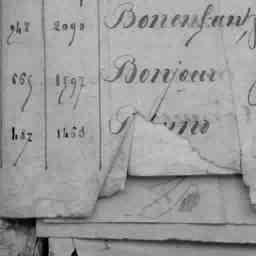 948 2090 Bonenfant
665 1597 Bonjour
1468